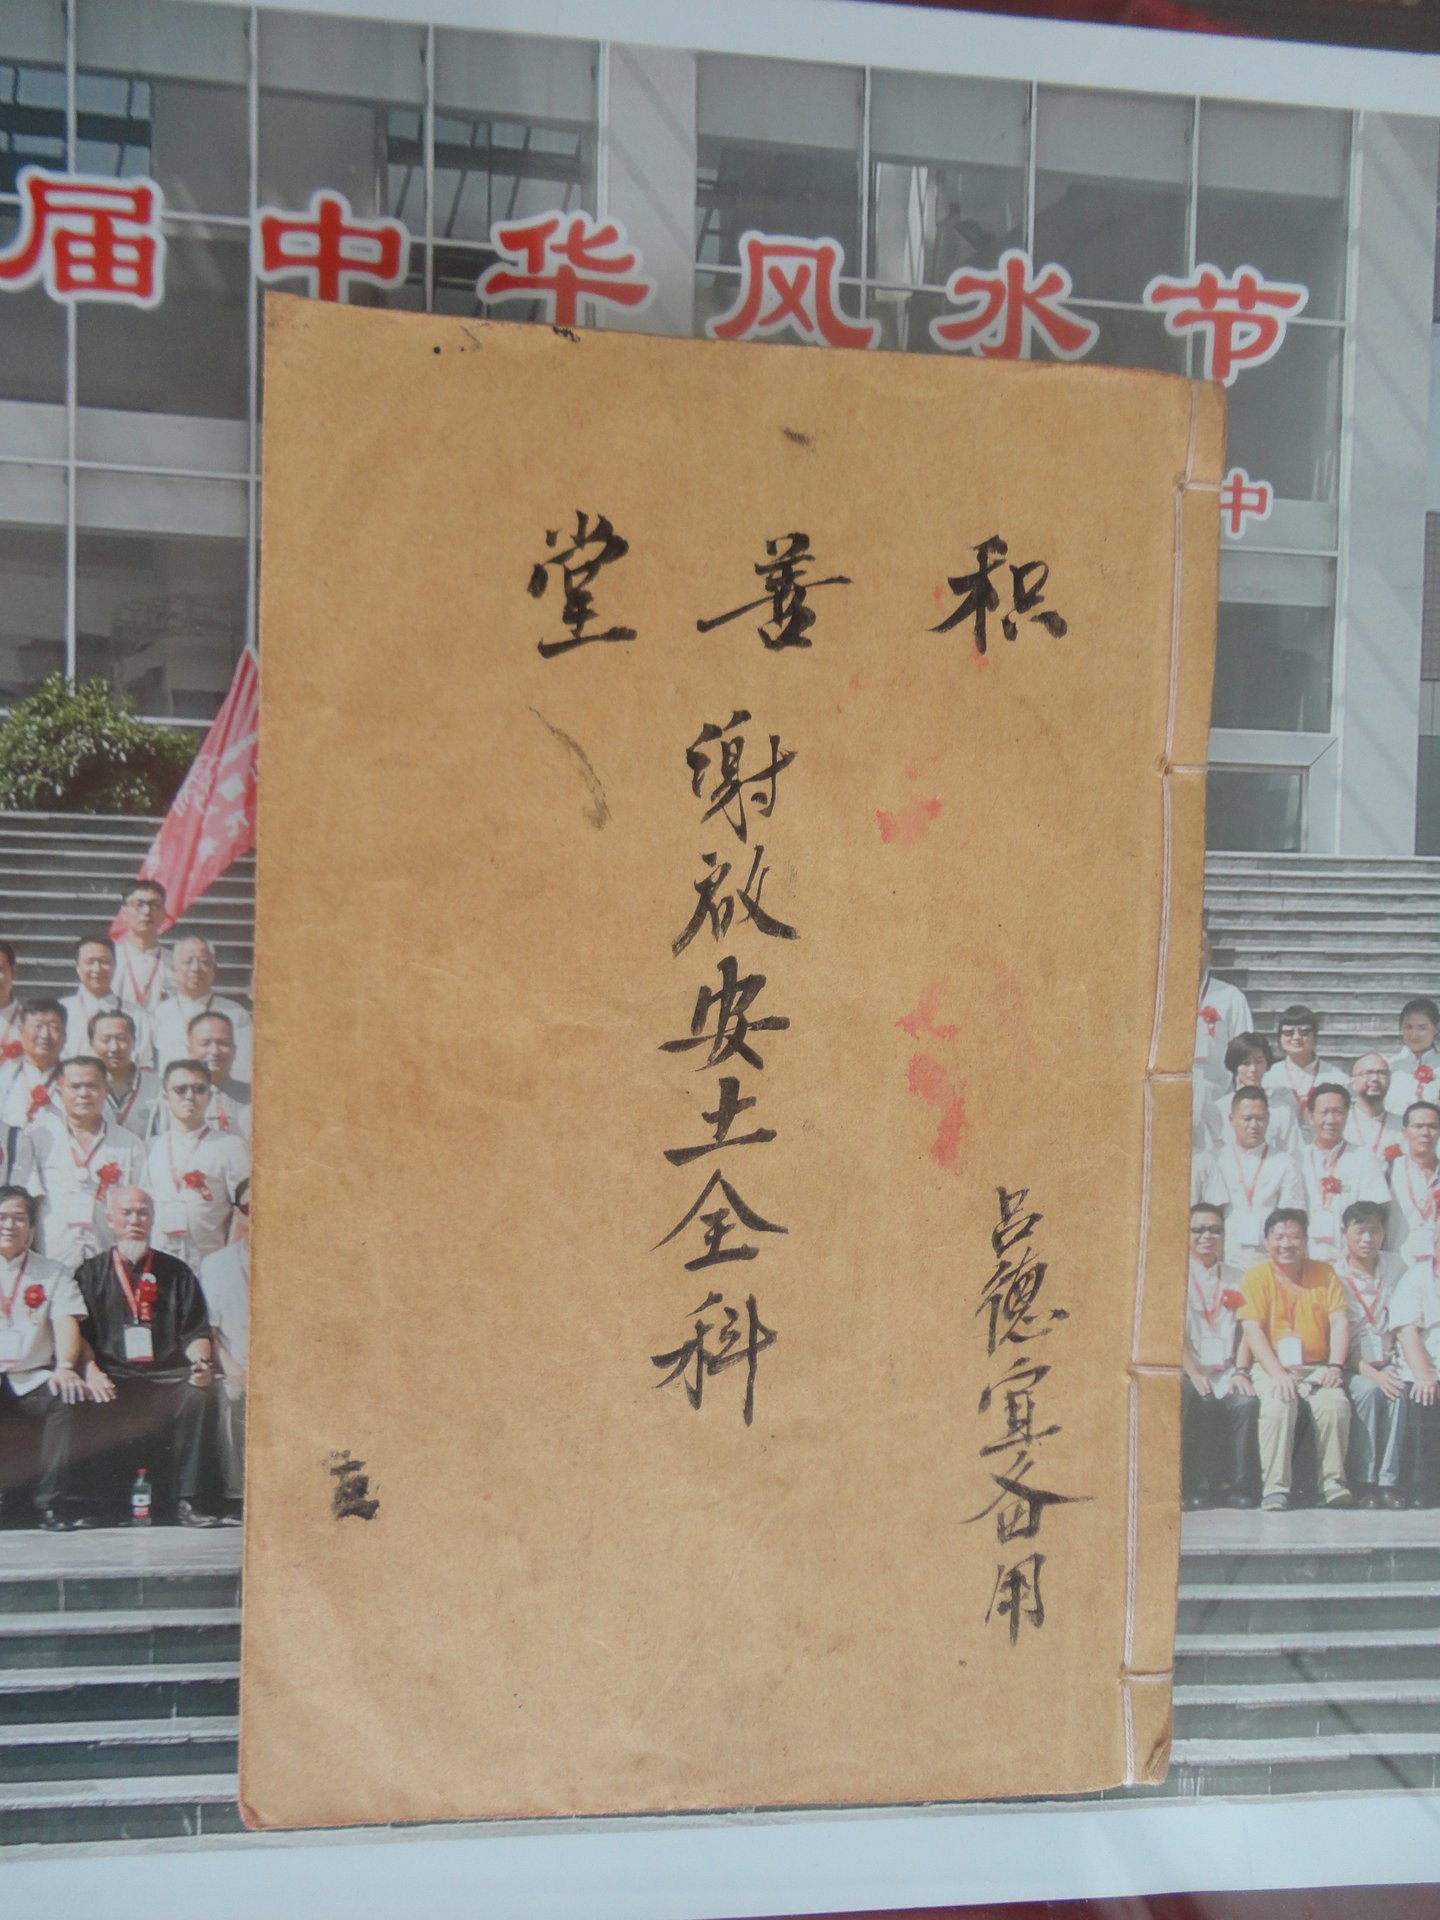 届中华风水节
中
积善堂
谢启安土全科
吕德宜备用